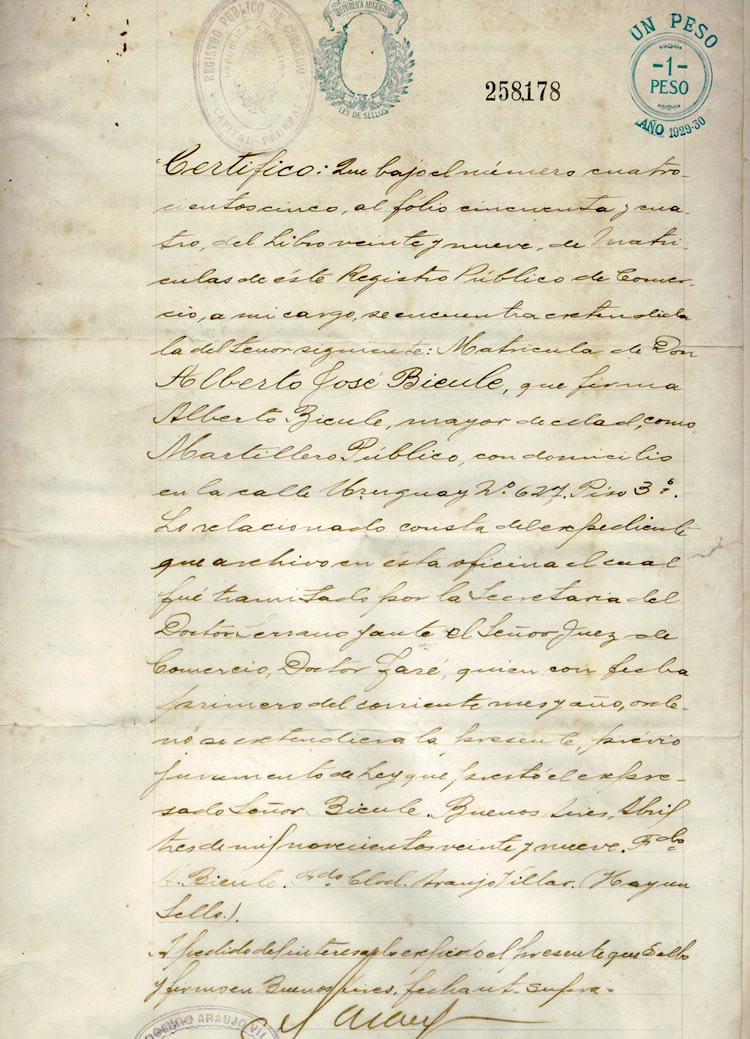 REGISTRO PÚBLICO DE COMERCIO
REPUBLICA ARGENTINA
CAPITAL FEDERAL
REPUBLICA ARGENTINA
LEY DE SELLOS
258,178
UN PESO
-1-
PESO
AÑO 1929-30
Certifico: Que bajo el número cuatro-
cientos cinco, al folio cincuenta y cua-
tro, del Libro veinte y nueve, de Matri-
culas de éste Registro Público de Comer-
cio, a mi cargo, se encuentra extendida
la del tenor siguiente: Matricula de Don
Alberto José Bicule, que firma
Alberto Bicule, mayor de edad, como
Martillero Público, con domicilio
en la calle Uruguay Nº 627. Piso 3º.
Lo relacionado consta del expediente
que archivo en ésta oficina el cual
fué tramitado por la Secretaria del
Doctor Serrano, ante el Señor Juez de
Comercio, Doctor Zaré, quien con fecha
primero del corriente mes y año, orde-
nó se extendiera la presente, prévio
juramento de Ley que prestó el expre-
sado Señor Bicule. Buenos Aires, Abril
tres de mil novecientos veinte y nueve. Fdo
A. Bicule. Fdo. Clod. Araujo Villar. (Hay un
Sello).
A pedido del interesado expido el presente que Sello
y firmo en Buenos Aires, fecha ut-supra-
ARAUJO VIL